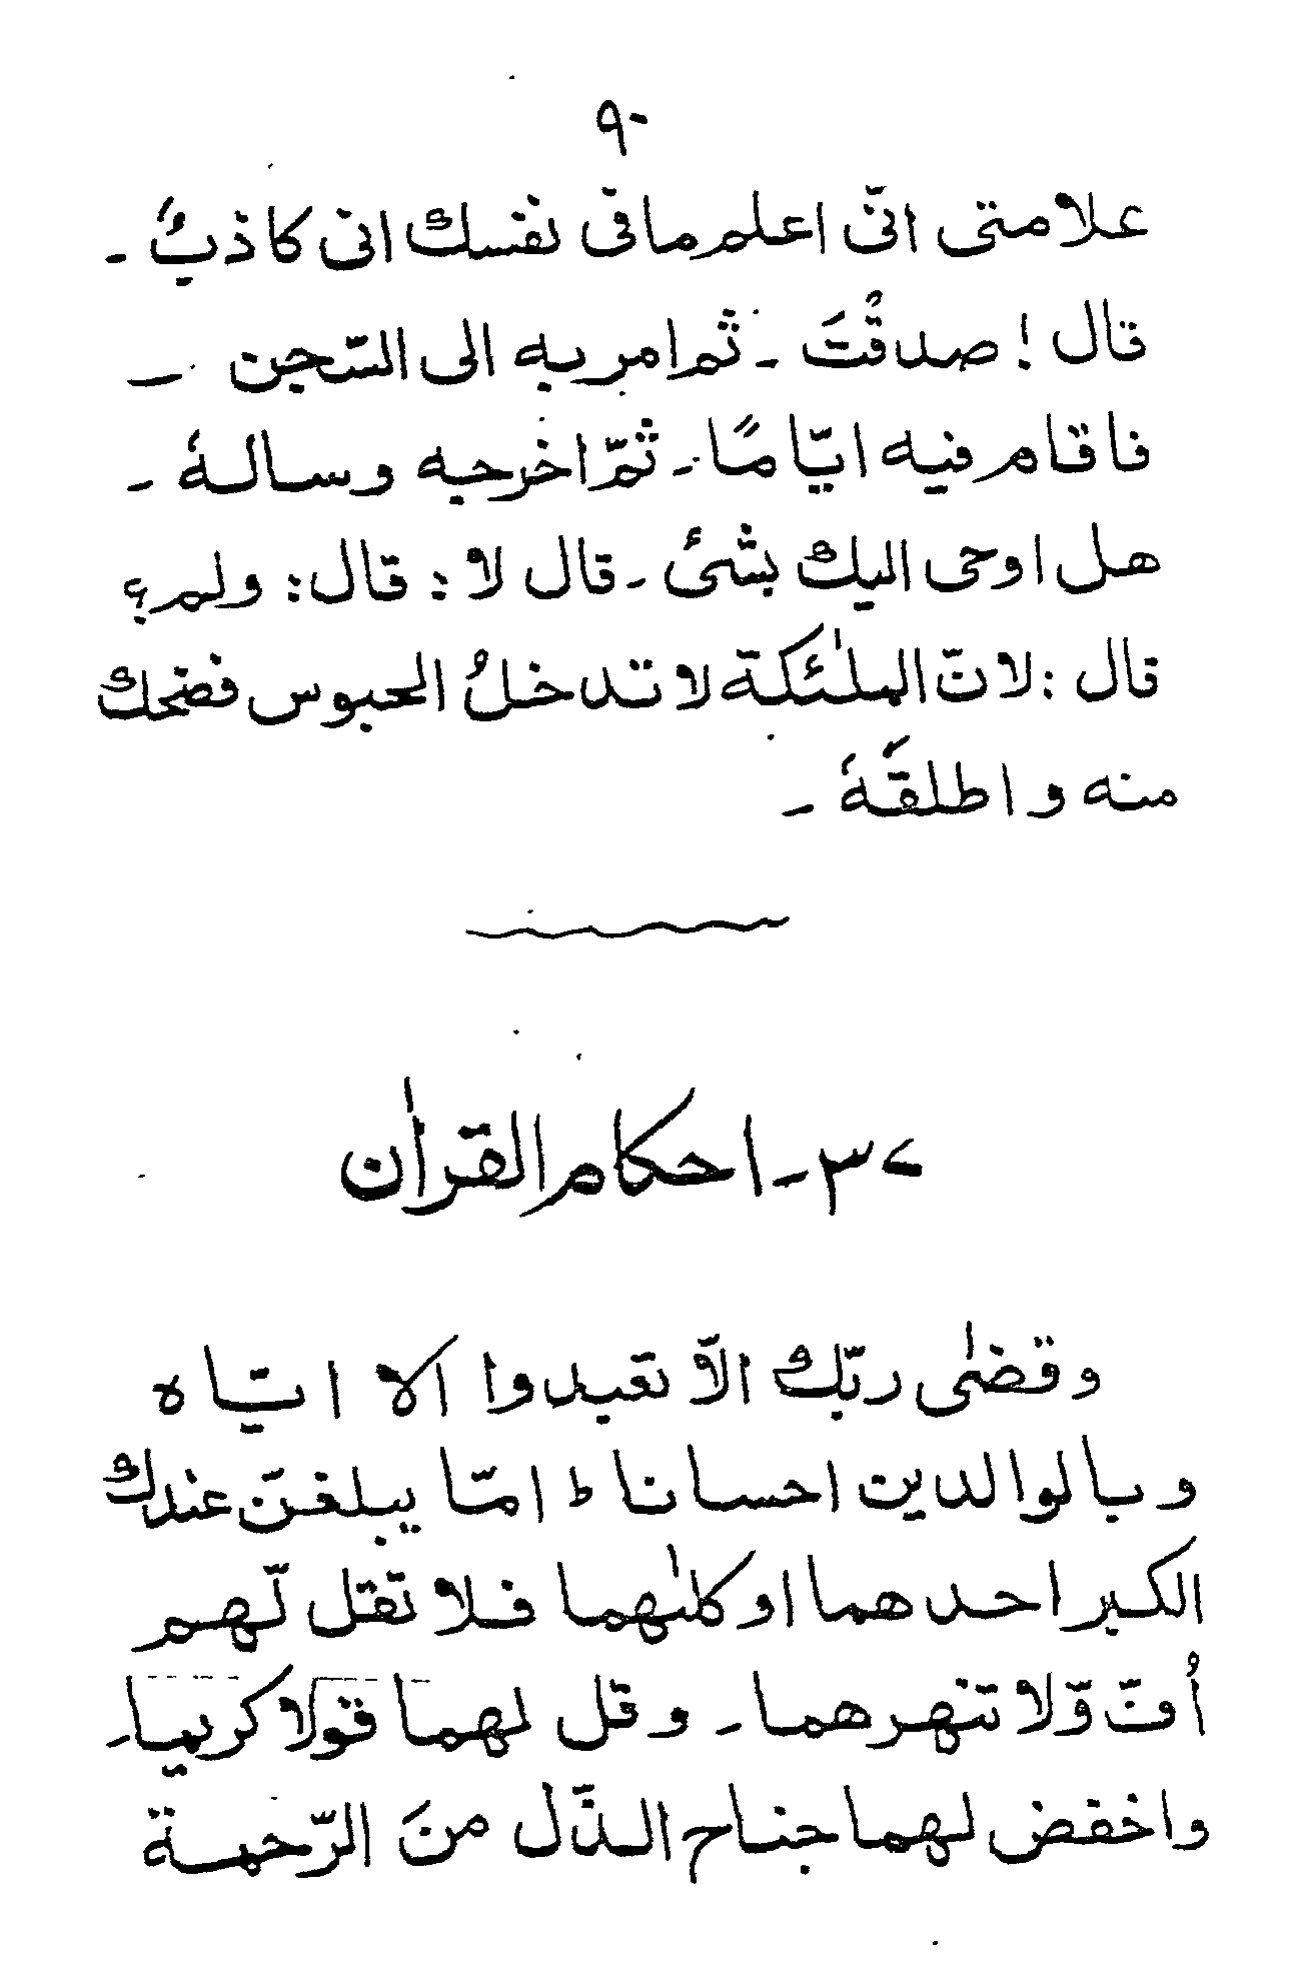 ٩٠
علامتى انّى اعلم ما فى نفسك انى كاذبٌ ۔
قال ! صدقْتَ ۔ ثم امر به الى السّجن ۔
فاقام فيه ايّامًا ۔ ثمّ اخرجه وسالهٗ ۔
هل اوحى اليك بشئ ۔ قال لا : قال : ولم ؟
قال : لانّ الملٰئكة لا تدخلُ الحبوس فضحك
منه واطلقهٗ ۔
٣٧ ۔ احكام القراٰن
وقضٰى ربّك الّا تعبدوا الا ايّاه
وبالوالدين احسانا ط امّا يبلغنّ عندك
الكبر احدهما او كلٰهما فلا تقل لّهم
اُفّ وّلا تنهرهما ۔ وقل لهما قولا كريما ۔
واخفض لهما جناح الذّل منَ الرّحمة